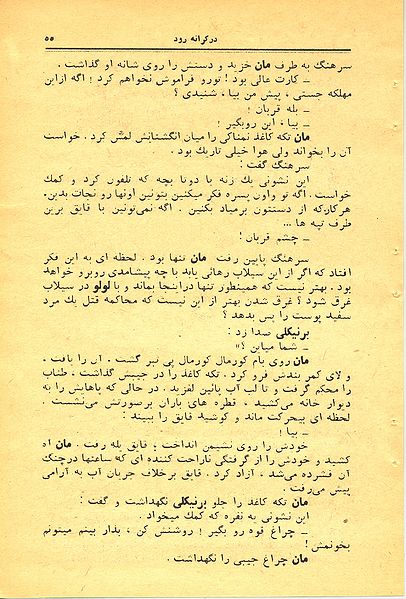 در کرانه رود ۵۵
سرهنگ به طرف مان خزید و دستش را روی شانه او گذاشت .
ـ کارت عالی بود ! تورو فراموش نخواهم کرد ! اگه ازاین
مهلکه جستی ، پیش من بیا ، شنیدی ؟
ـ بله قربان !
ـ بیا ، این روبگیر !
مان تکه کاغذ نمناکی را میان انگشتانش لمس کرد . خواست
آن را بخواند ولی هوا خیلی تاریك بود .
سرهنگ گفت :
این نشونی یك زنه با دوتا بچه که تلفون کرد و کمك
خواست . اگه تو واون پسره فکر میکنین بتونین اونها رو نجات بدین،
هرکارکه از دستتون برمیاد بکنین . اگه نمی‌تونین با قایق برین
طرف تپه ها ...
ـ چشم قربان !
سرهنگ پایین رفت مان تنها بود . لحظه ای به این فکر
افتاد که اگر از این سیلاب رهائی یابد با چه پیشامدی روبرو خواهد
بود . بهتر نیست که همینطور تنها دراینجا بماند و با لولو در سیلاب
غرق شود ؟ غرق شدن بهتر از این نیست که محاکمه قتل یك مرد
سفید پوست را پس بدهد ؟
برنیکلی صدا زد :
ـ شما میاین ؟»
مان روی بام کورمال کورمال پی تبر گشت . آن را یافت ،
و لای کمر بندش فرو کرد . تکه کاغذ را در جیبش گذاشت ، طناب
را محکم گرفت و تا لب آب پائین لغزید . در حالی که پاهایش را به
دیوار خانه می‌کشید ، قطره های باران برصورتش می‌نشست .
لحظه ای بیحرکت ماند و کوشید قایق را ببیند :
ـ بیا !
خودش را روی نشیمن انداخت ، قایق یله رفت . مان آه
کشید و خودش را از گرفتگی ناراحت کننده ای که ساعتها درچنگ
آن فشرده می‌شد ، آزاد کرد . قایق برخلاف جریان آب به آرامی
پیش می‌رفت .
مان تکه کاغذ را جلو برنیکلی نگهداشت و گفت :
این نشونی یه نفره که کمك میخواد .
ـ چراغ قوه رو بگیر ! روشنش کن ، بذار ببینم میتونم
بخونمش !
مان چراغ جیبی را نگهداشت .